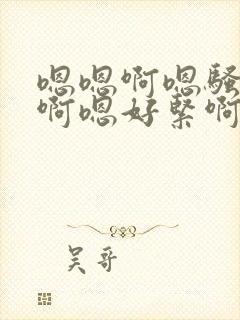 嗯嗯啊嗯骚
啊嗯好紧啊
吴哥